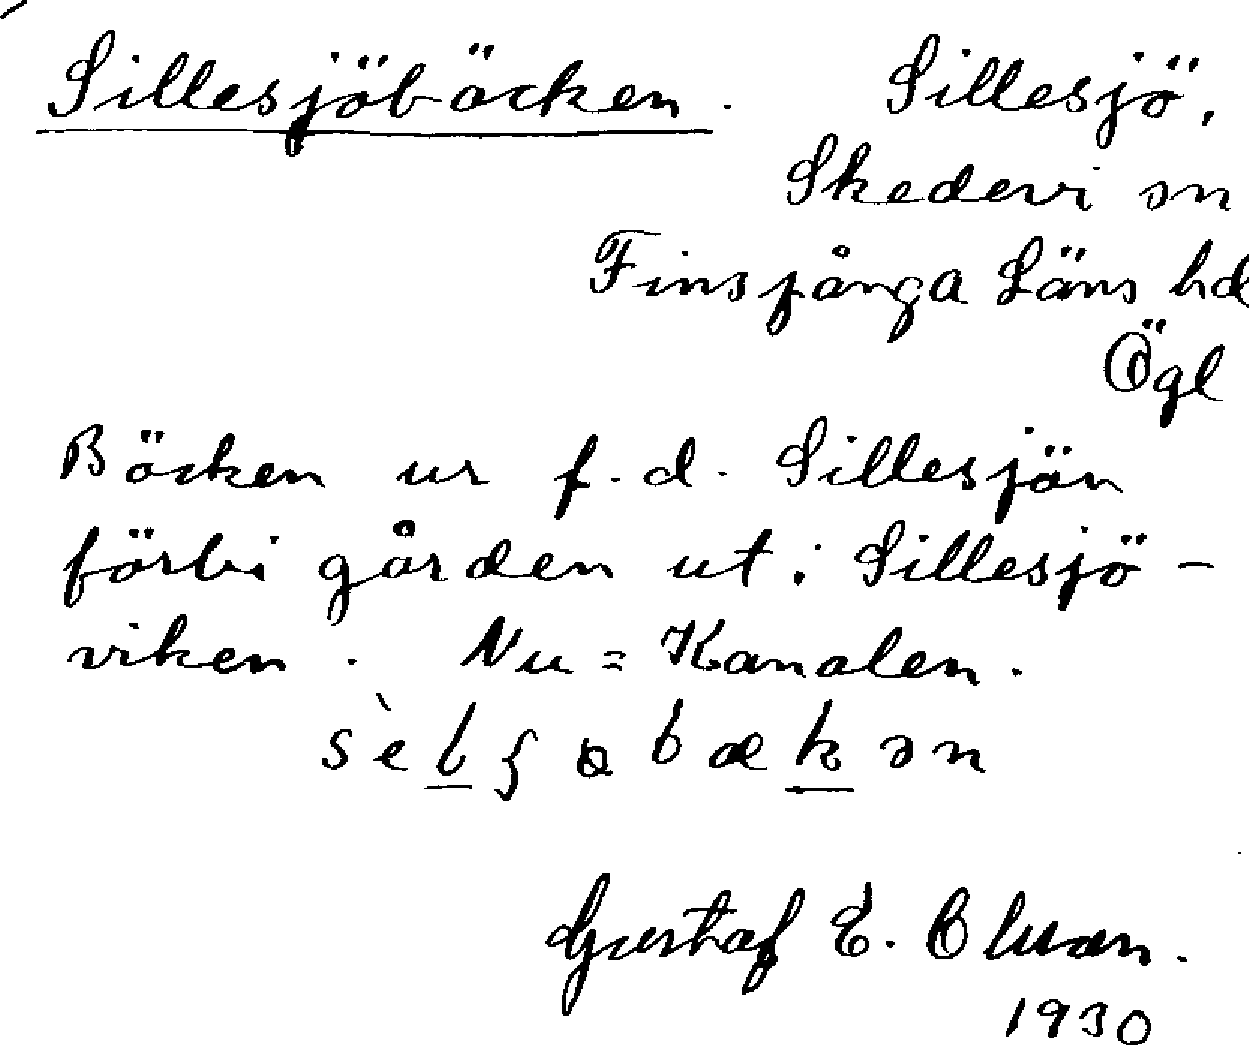 Sillesjöbäcken. Sillesjö,
Skedevi sn
Finspånga Läns hd
Ögl
Bäcken ur f.d. Sillesjön
förbi gården ut i Sillesjö-
viken. Nu = Kanalen.
Gustaf E. Olson.
1930